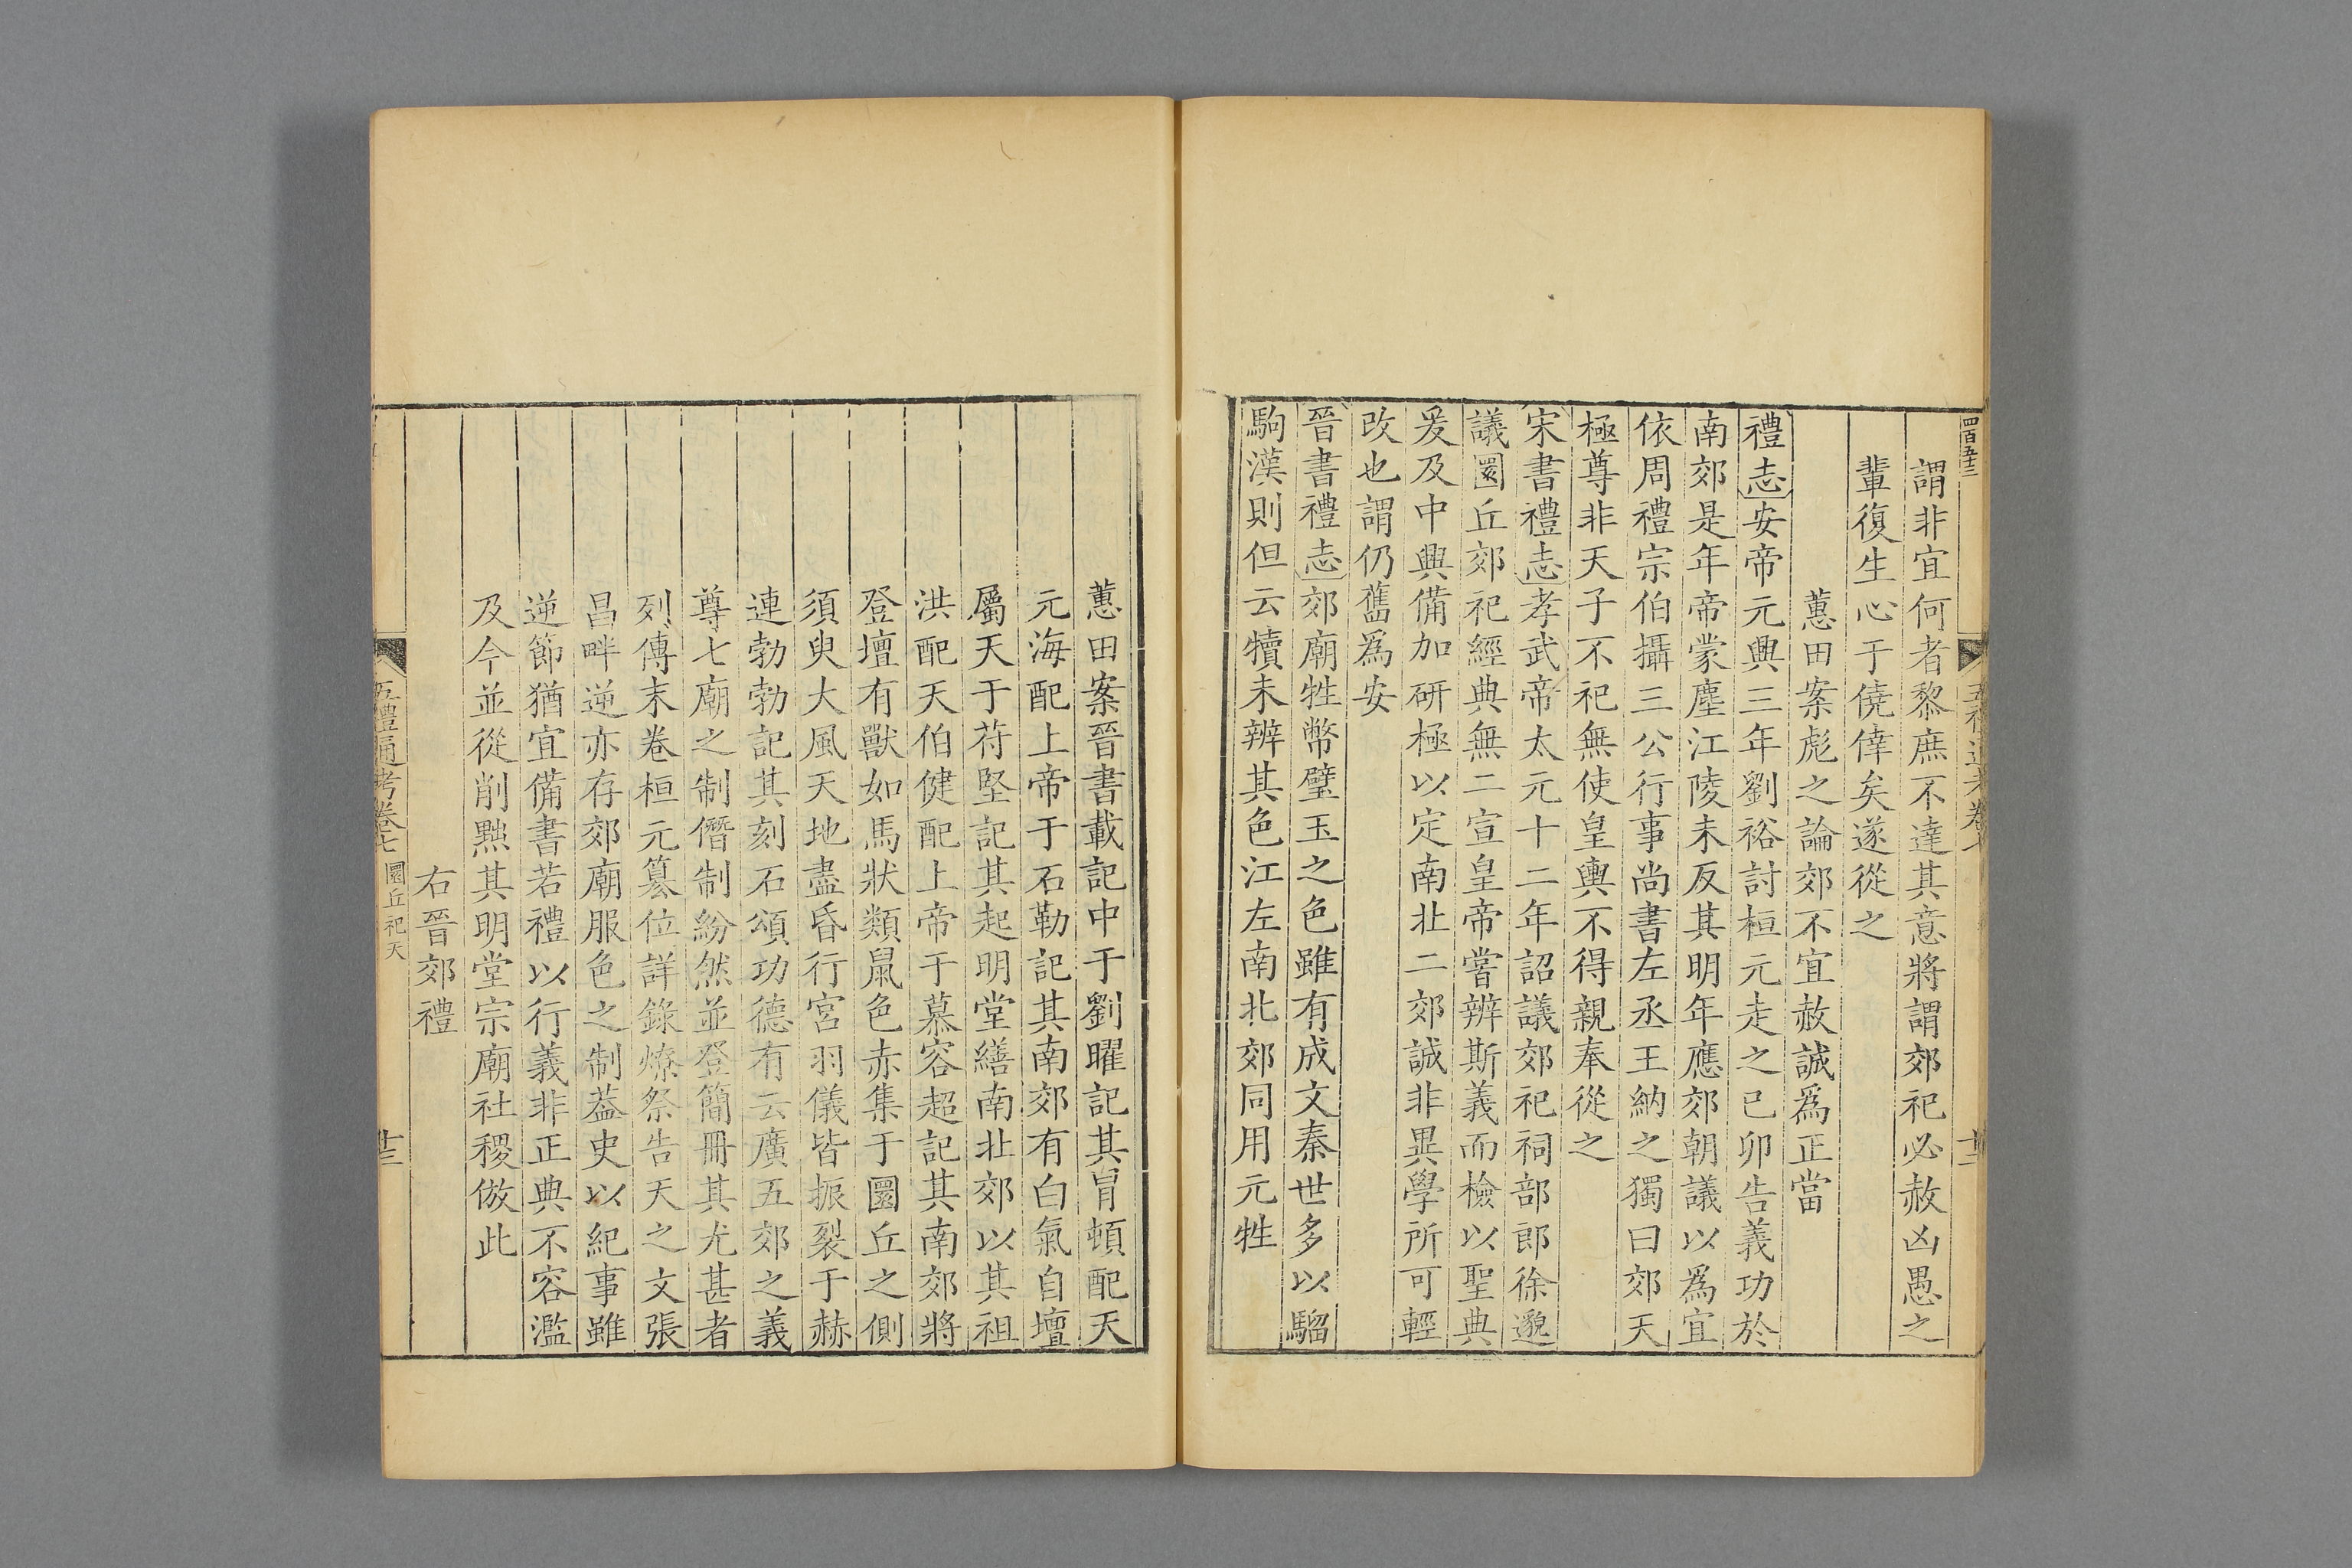 四百五十三
謂非宜何者黎庶不達其意將謂郊祀必赦凶愚之
輩復生心于僥倖矣遂從之
蕙田案彪之論郊不宜赦誠爲正當
禮志安帝元興三年劉裕討桓元走之已卯告義功於
南郊是年帝蒙塵江陵未反其明年應郊朝議以爲宜
依周禮宗伯攝三公行事尚書左丞王納之獨曰郊天
極尊非天子不祀無使皇輿不得親奉從之
宋書禮志孝武帝太元十二年詔議郊祀祠部郎徐邈
議圜丘郊祀經典無二宣皇帝嘗辨斯義而檢以聖典
爰及中興備加研極以定南北二郊誠非異學所可輕
改也謂仍舊爲安
晉書禮志郊廟牲幣璧玉之色雖有成文秦世多以騮
駒漢則但云犢未辨其色江左南北郊同用元牲
蕙田案晉書載記中于劉曜記其冒頓配天
元海配上帝于石勒記其南郊有白氣自壇
屬天于苻堅記其起明堂繕南北郊以其祖
洪配天伯健配上帝于慕容超記其南郊將
登壇有獸如馬狀類鼠色赤集于圜丘之側
須臾大風天地盡昏行宮羽儀皆振裂于赫
連勃勃記其刻石頌功德有云廣五郊之義
尊七廟之制僭制紛然並登簡冊其尤甚者
列傳末卷桓元篡位詳錄燎祭告天之文張
昌畔逆亦存郊廟服色之制葢史以紀事雖
逆節猶宜備書若禮以行義非正典不容濫
及今並從削黜其明堂宗廟社稷倣此
右晉郊禮
五禮通考卷七 圜丘祀天 十三